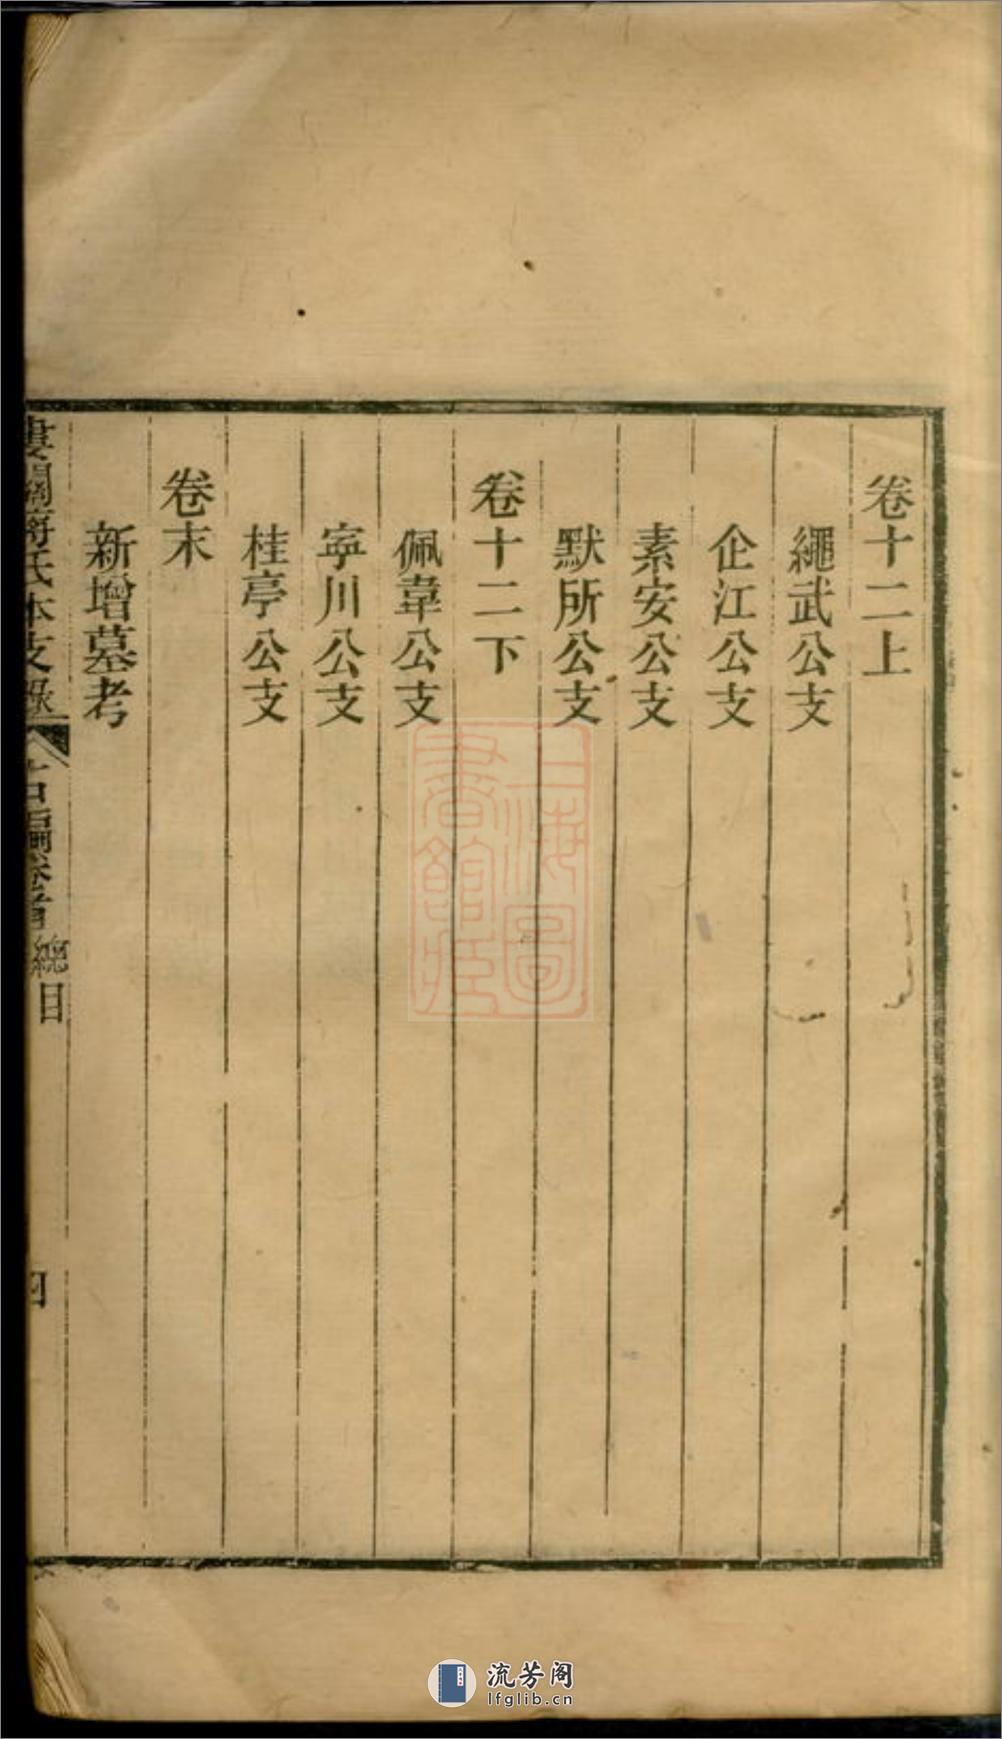 卷十二上
繩武公支
企江公支
素安公支
默所公支
卷十二下
佩韋公支
寧川公支
桂亭公支
卷末
新增墓考
婁關蔣氏本支錄
右編卷首
總目
四
上海圖
書館藏
流芳阁
lfglib.cn